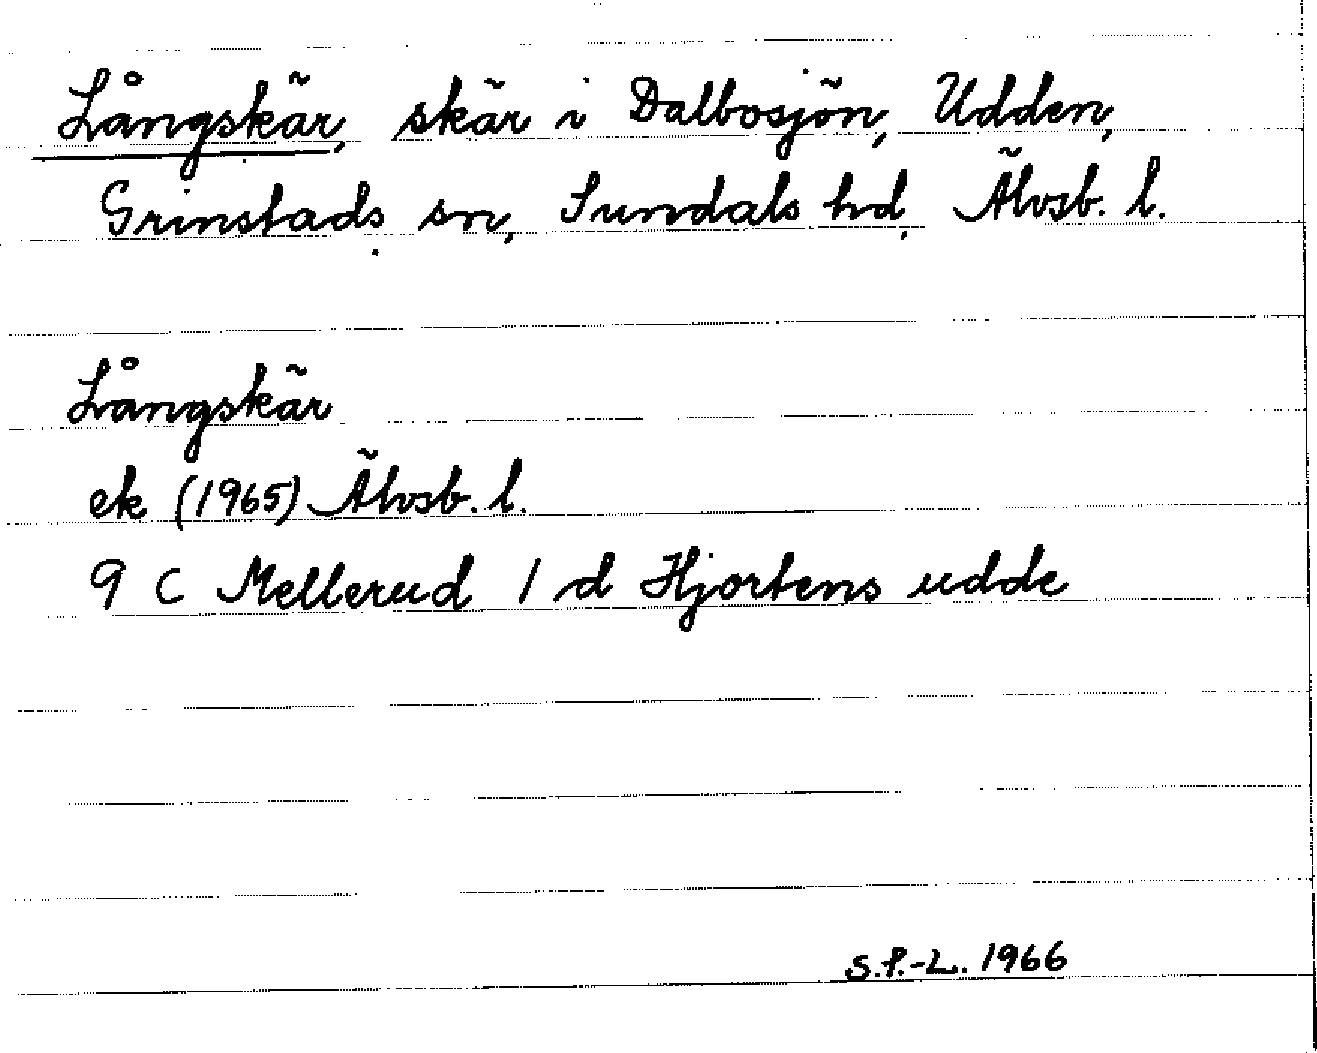 Långskär, skär i Dalbosjön, Udden,
Grinstads sn, Sundals hd, Älvsb. l.
Långskär
ek (1965) Älvsb. l.
9 C Mellerud 1 d Hjortens udde
S.P.-L. 1966